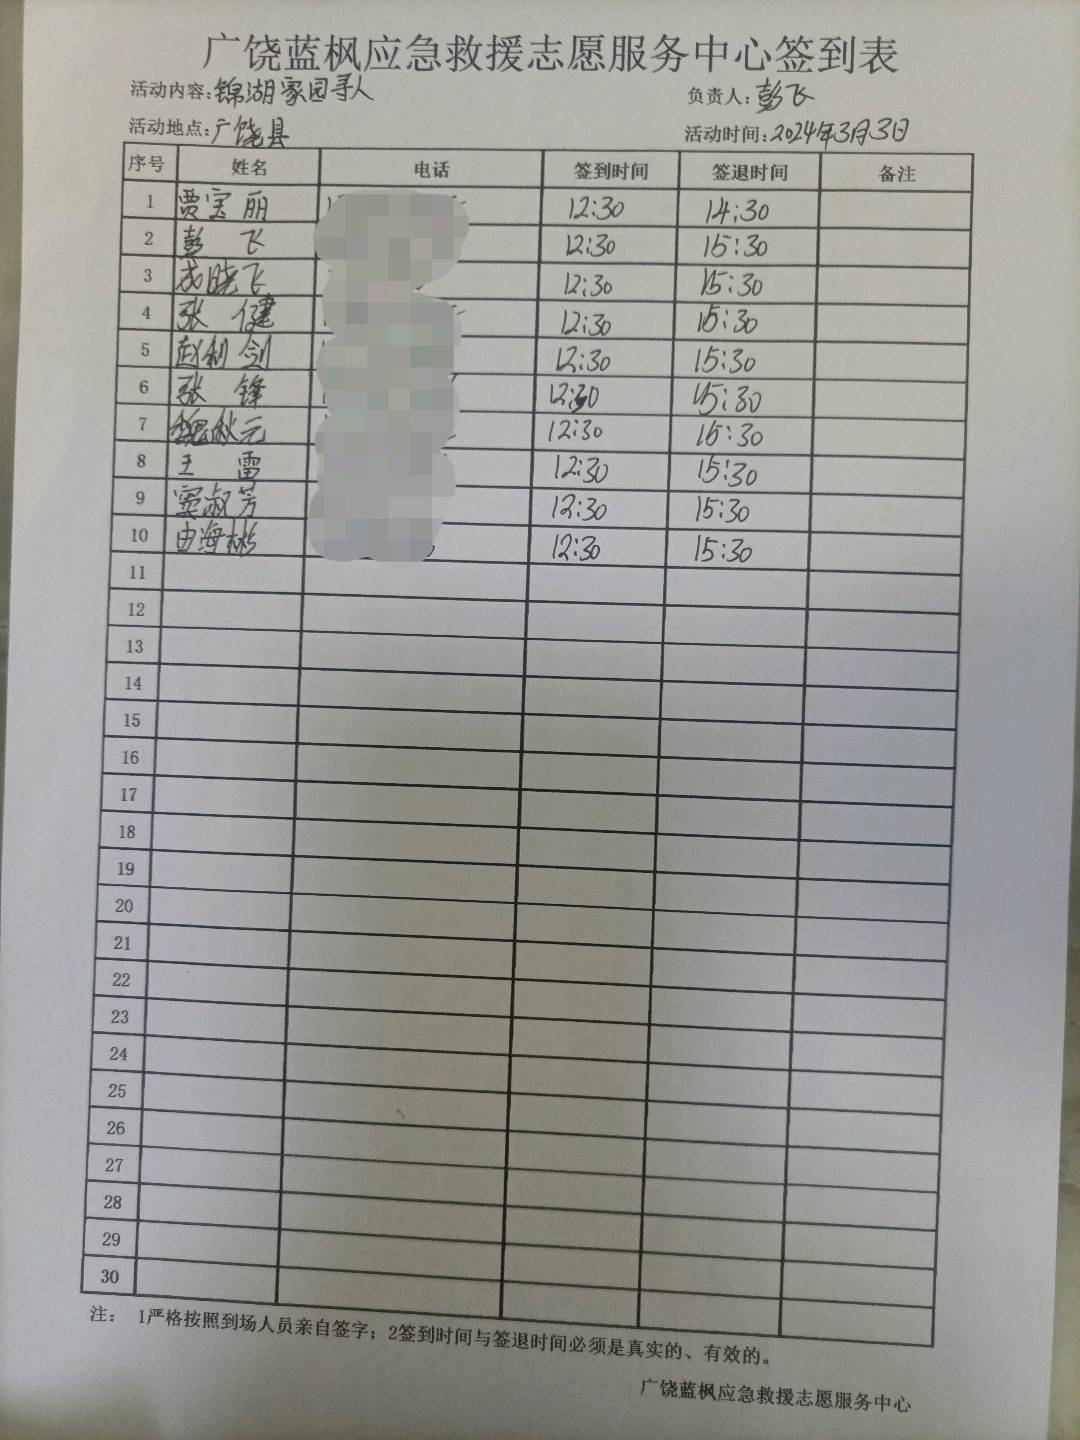 广饶蓝枫应急救援志愿服务中心签到表
活动内容:锦湖家园寻人 负责人:彭飞
活动地点:广饶县 活动时间:2024年3月3日
序号 姓名 电话 签到时间 签退时间 备注
1 贾宝丽 12:30 14:30
2 彭飞 12:30 15:30
3 成晓飞 12:30 15:30
4 张健 12:30 15:30
5 赵利剑 12:30 15:30
6 张锋 12:30 15:30
7 魏秋元 12:30 15:30
8 王雷 12:30 15:30
9 窦淑芳 12:30 15:30
10 由海彬 12:30 15:30
11
12
13
14
15
16
17
18
19
20
21
22
23
24
25
26
27
28
29
30
注: 1严格按照到场人员亲自签字;2签到时间与签退时间必须是真实的、有效的。
广饶蓝枫应急救援志愿服务中心